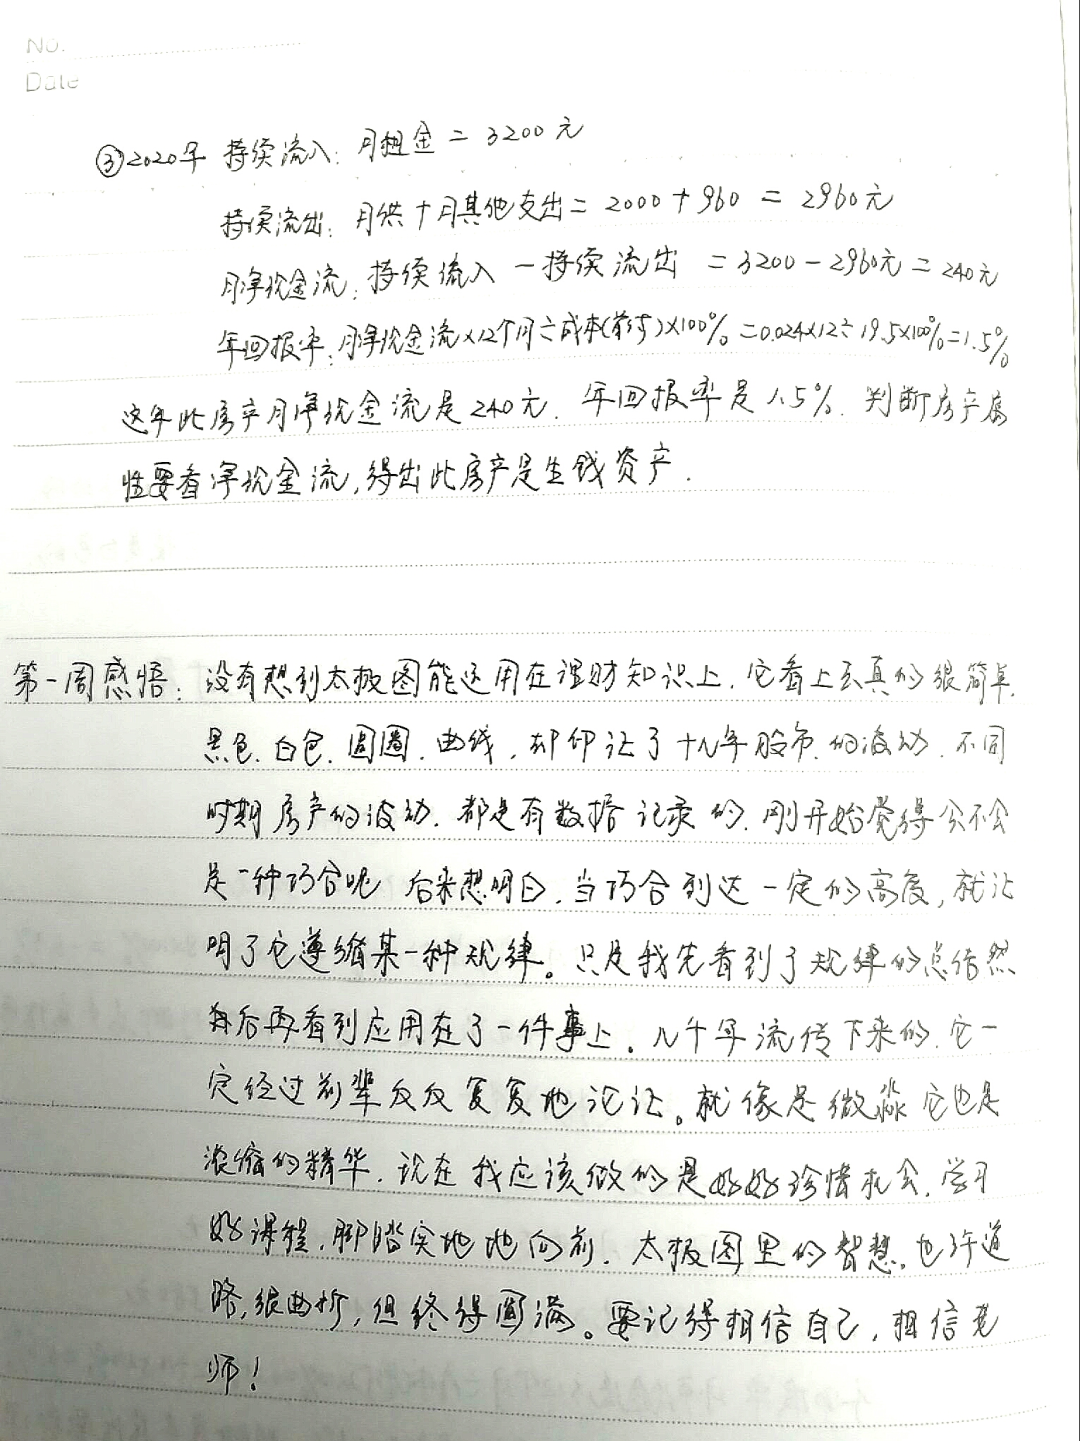 No.
Date
③2020年 持续流入: 月租金 = 3200元
持续流出: 月供+月其他支出 = 2000+960 = 2960元
月净现金流: 持续流入 - 持续流出 = 3200-2960元 = 240元
年回报率: 月净现金流×12个月÷成本(首付)×100% =0.024×12÷19.5×100%=1.5%
这年此房产月净现金流是240元. 年回报率是1.5%. 判断房产属
性要看净现金流,得出此房产是生钱资产.
第一周感悟: 没有想到太极图能运用在理财知识上, 它看上去真的很简单,
黑色, 白色, 圆圈, 曲线, 却印证了十几年股市的波动, 不同
时期房产的波动. 都是有数据记录的, 刚开始觉得会不会
是一种巧合呢 后来想明白, 当巧合到达一定的高度, 就证
明了它遵循某一种规律。只是我先看到了规律的总结然
后再看到应用在了一件事上。几千年流传下来的, 它一
定经过前辈反反复复地论证。就像是微淼它也是
浓缩的精华, 现在我应该做的是好好珍惜机会, 学习
好课程, 脚踏实地地向前, 太极图里的智慧。也许道
路,很曲折, 但终得圆满。要记得相信自己, 相信老
师!